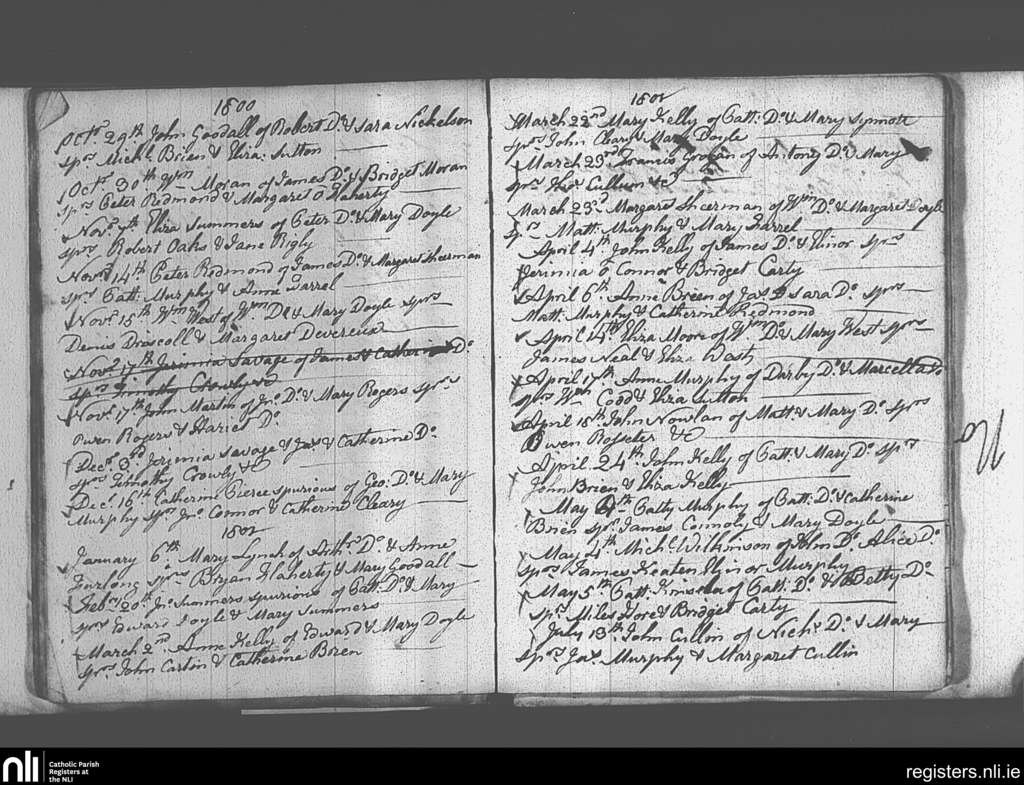 1800
Octr 29th John Goodall of Robert Do & Sara Nickelson
sprs Michl Brien & Eliza: Sutton
Octr 30th Wm Moran of James Do & Bridget Moran
sprs Peter Redmond & Margaret O Flaherty
Novr 7th Eliza Summers of Peter Do & Mary Doyle
sprs Robert Oaks & Jane Rigly
Novr 14th Peter Redmond of James Do & Margaret Sheerman
sprs Catt: Murphy & Anne Farrel
Novr 15th Wm West of Wm Do & Mary Doyle sprs
Denis Driscoll & Margaret Devereux
Novr 17th Jerimia Savage of James & Catherine Do
sprs Timothy Crowly &c
Novr 17th John Martin of Jno Do & Mary Rogers sprs
Owen Rogers & Hariet Do
Decr 3rd Jerjemia Savage of Jas & Catherine Do
sprs Timothy Crowly &c
Decr 16th Catherine Pierce spurious of Geo: Do & Mary
Murphy sprs Jno Connor & Catherine Cleary
1801
January 6th Mary Lynch of Arthr Do & Anne
Furlong sprs Bryan Flaherty & Mary Goodall
Febry 20th Jno Summers spurious of Catt: Do & Mary
sprs Edward Doyle & Mary Summers
March 2nd Anne Kelly of Edward & Mary Doyle
sprs John Carton & Catherine Brien
1801
March 22nd Mary Kelly of Catt: Do & Mary Synott
sprs John Cleary & Mary Doyle
March 23rd Francis of Antony Do & Mary
sprs Thos Cullum &c
March 23d Margaret Sheerman of Wm Do & Margaret Doyle
sprs Matt: Murphy & Mary Farrel
April 4th John Kelly of James Do & Elinor sprs
Jerimia O Connor & Bridget Carty
April 6th Anne Breen of Jas & Sara Do sprs
Matt: Murphy & Catherine Redmond
April 14th Eliza Moore of Wm Do & Mary West sprs
James Neal & Eliza West
April 17th Anne Murphy of Darby Do & Marcella Do
sprs Wm Codd & Eliza Sutton
April 18th John Nowlan of Matt: & Mary Do sprs
Owen Rosseter &c
April 24th John Kelly of Catt: & Mary Do sprs
John Brien & Eliza Kelly
May 4th Catty Murphy of Catt: Do & Catherine
Brien sprs James Connoly & Mary Doyle
May 4th Michl Wilkinson of John Do Alice Do
sprs James Keaten Elinor Murphy
May 5th Catt: Kinsela of Catt: Do & Betty Do
sprs Miles Hore & Bridget Carty
July 13th John Cullin of Nichs Do & Mary
sprs Jas Murphy & Margaret Cullin
nli
Catholic Parish
Registers at
the NLI
registers.nli.ie